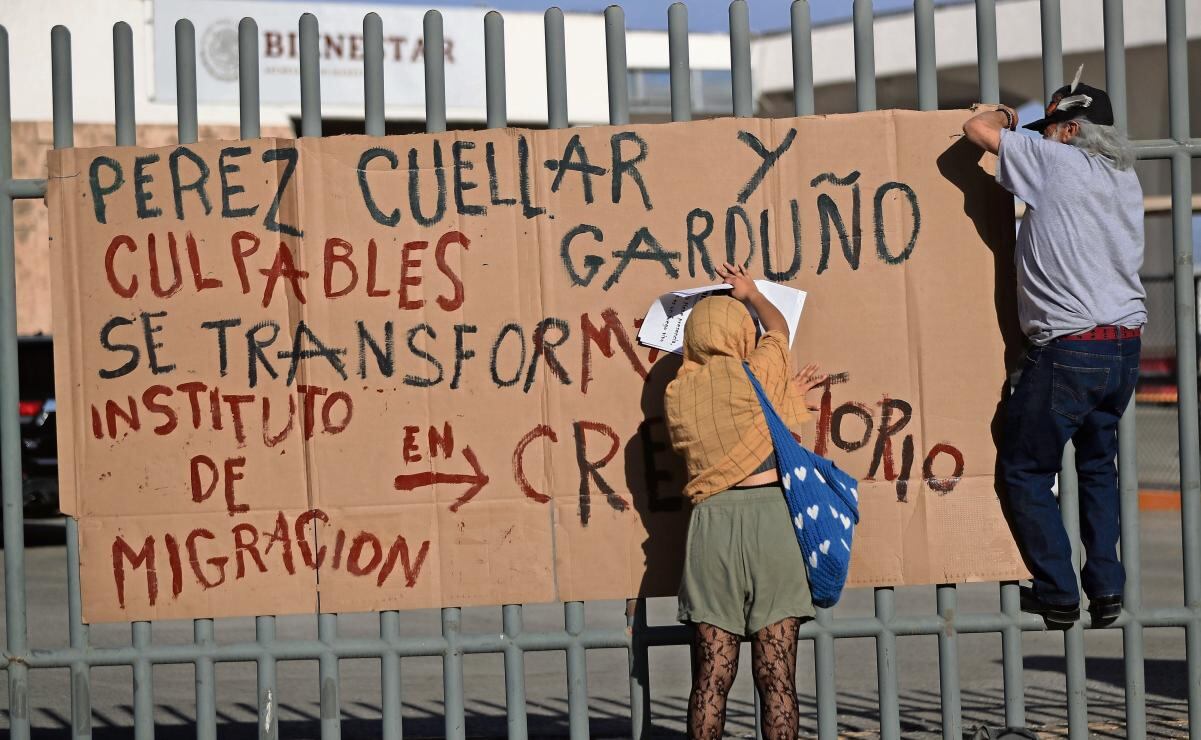 BIENESTAR
PEREZ CUELLAR Y
GARDUÑO
CULPABLES
SE TRANSFORMA
INSTITUTO
DE
MIGRACION
EN → CREMATORIO